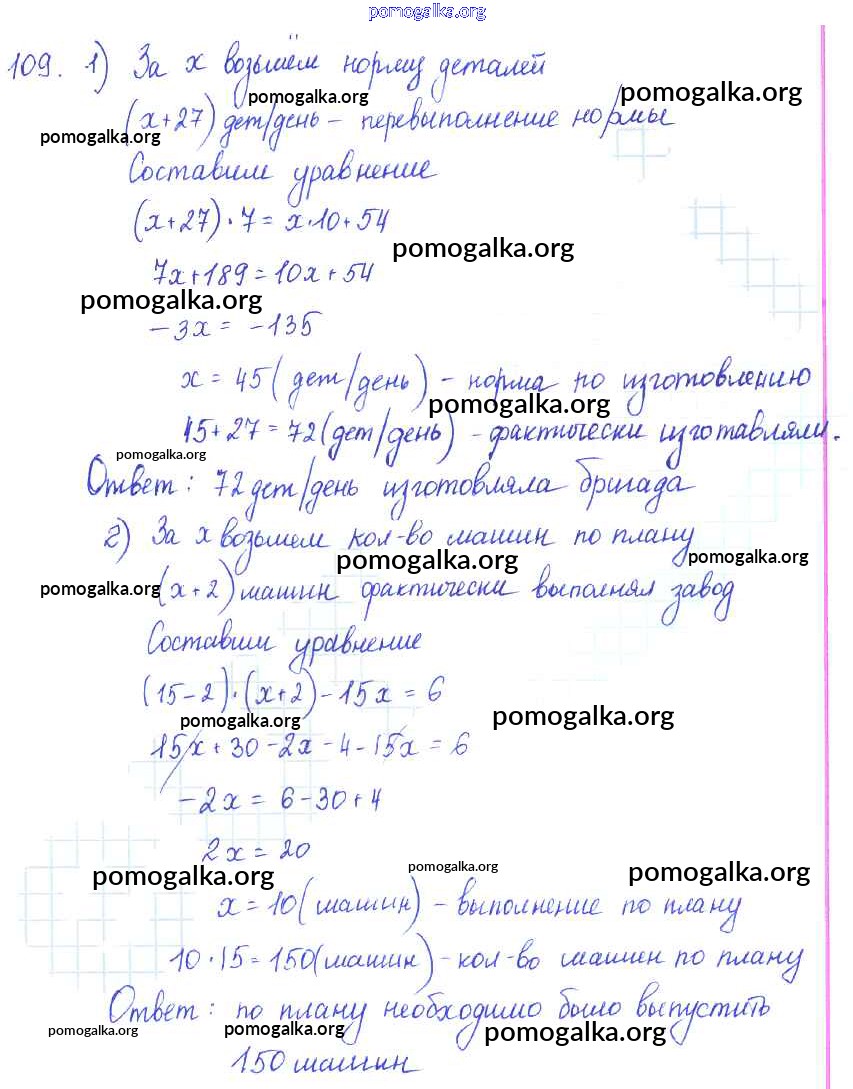 pomogalka.org
109. 1) За x возьмём норму деталей
pomogalka.org pomogalka.org
(x+27) дет/день – перевыполнение нормы
pomogalka.org
Составим уравнение
(x+27)·7=x·10+54
pomogalka.org
7x+189=10x+54
pomogalka.org
-3x = -135
x = 45 (дет/день) – норма по изготовлению
pomogalka.org
45+27=72(дет/день) – фактически изготавляли.
pomogalka.org
Ответ: 72 дет/день изготовляла бригада
2) За x возьмем кол-во машин по плану
pomogalka.org pomogalka.org
pomogalka.org
(x+2) машин фактически выполнял завод
Составим уравнение
(15-2)·(x+2)-15x = 6
pomogalka.org pomogalka.org
15x+30-2x-4-15x = 6
-2x = 6-30+4
2x = 20
pomogalka.org pomogalka.org pomogalka.org
x=10(машин) – выполнение по плану
10·15=150(машин) – кол-во машин по плану
Ответ: по плану необходимо было выпустить
pomogalka.org pomogalka.org pomogalka.org
150 машин